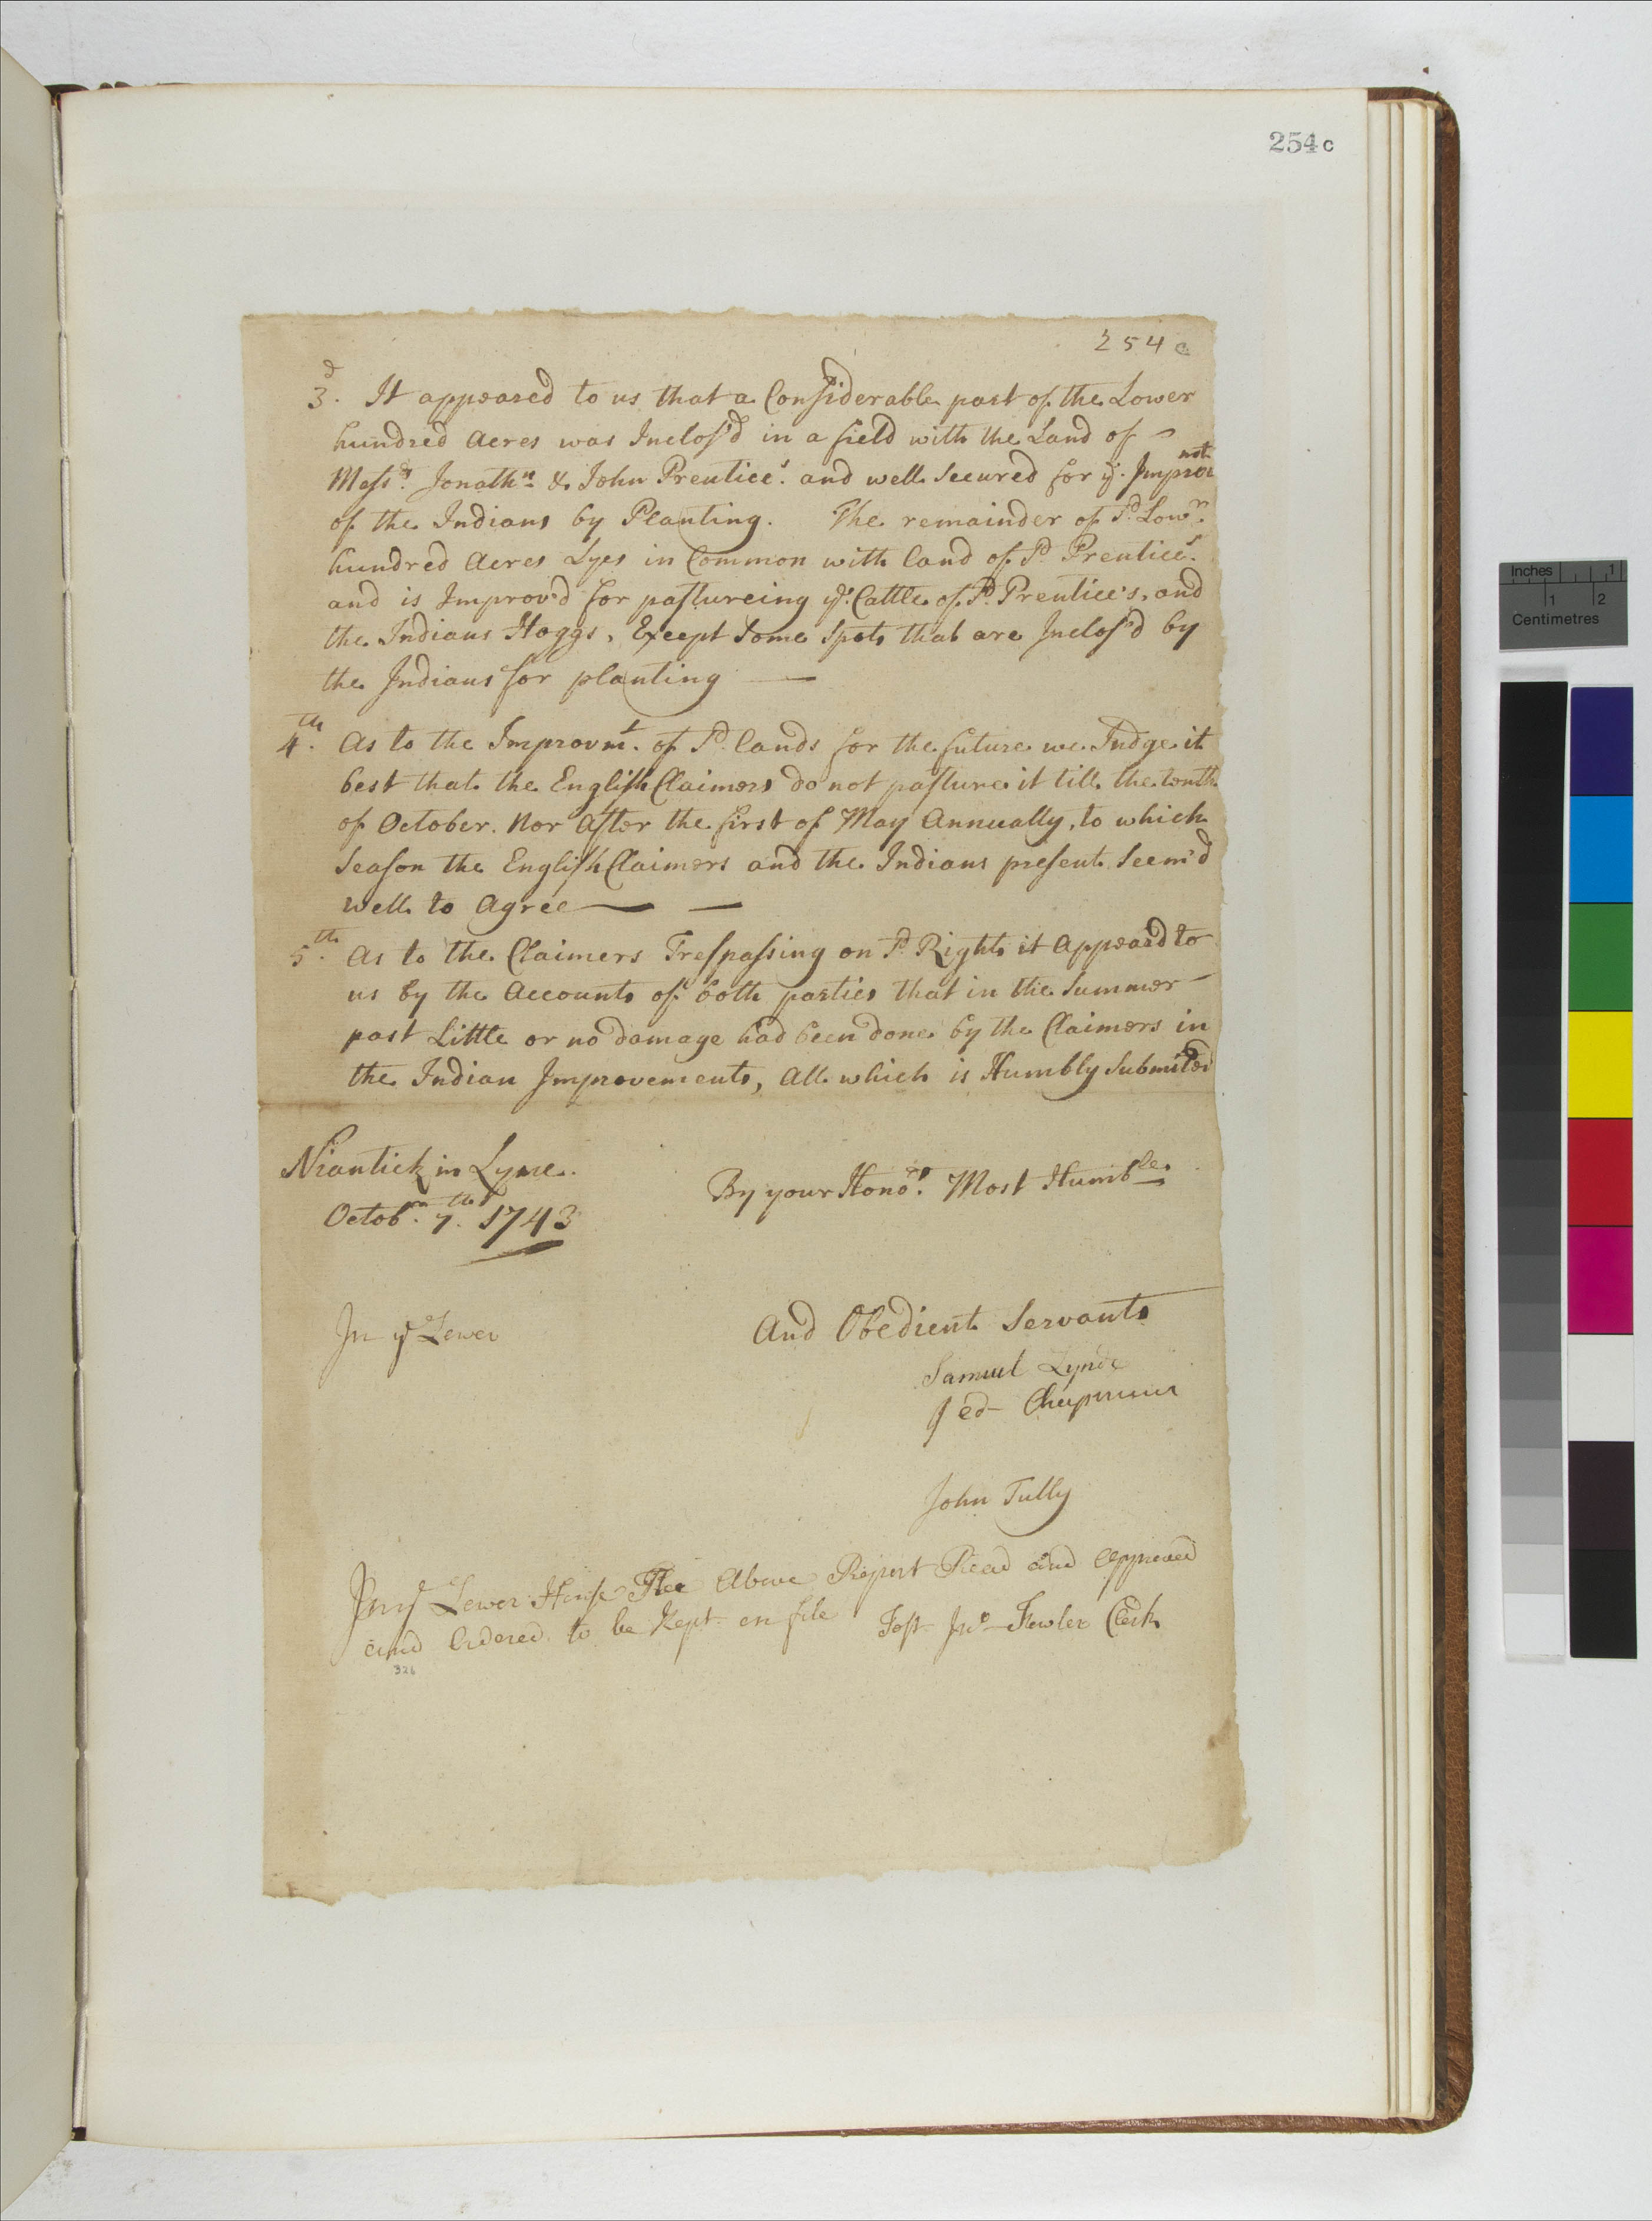 254c
254c
3.d It appeared to us that a Considerable part of the Lower
hundred Acres was Inclos'd in a field with the Land of -
Messrs. Jonathn. & John Prentice's. and well Secured for ye. Improvmt
of the Indians by Planting. The remainder of sd. Lowr.
hundred Acres Lyes in Common with land of sd. Prentice's.
and is Improv'd for pastureing ye. Cattle of sd. Prentice's, and
the Indians Hoggs, Except Some Spots that are Inclos'd by
the Indians for planting —
4th. As to the Improvmt. of sd. lands for the future we Judge it
best that the English Claimers do not pasture it till the tenth
of October. Nor After the first of May Annually, to which
Season the English Claimers and the Indians present Seem'd
well to Agree — —
5th. As to the Claimers Trespassing on sd. Right it Appear'd to
us by the Accounts of both parties that in the Summer -
past Little or no damage had been done by the Claimers in
the Indian Improvements, All which is Humbly Submitted
Niantick in Lyme.
By your Honors. Most Humble
Octobr. 7th. 1743
And Obedient Servants
In ye Lower
Samuel Lynde
Jed- Chapman
John Tully
In ye Lower House The Above Report Read and Approved
and Ordered to be Kept on file Test Jno Fowler Clerk
326
Inches 1
1 2
Centimetres